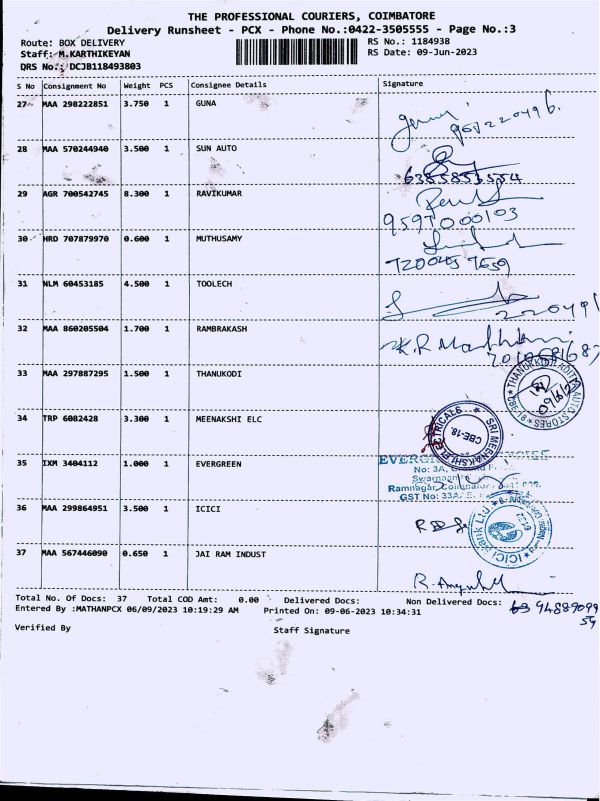 THE PROFESSIONAL COURIERS, COIMBATORE
Delivery Runsheet - PCX - Phone No.:0422-3505555 - Page No.:3
Route: BOX DELIVERY RS No.: 1184938
Staff: M.KARTHIKEYAN RS Date: 09-Jun-2023
QRS No.: DCJB118493803
S No Consignment No Weight PCS Consignee Details Signature
27 MAA 298222851 3.750 1 GUNA
28 MAA 570244940 3.500 1 SUN AUTO
29 AGR 700542745 8.300 1 RAVIKUMAR
9597000103
30 HRD 707879970 0.600 1 MUTHUSAMY
31 NLM 60453185 4.500 1 TOOLECH
32 MAA 860205504 1.700 1 RAMBRAKASH
K.R
33 MAA 297887295 1.500 1 THANUKODI
34 TRP 6082428 3.300 1 MEENAKSHI ELC
SRI MEENAKSHI ELECTRICALS
CBE-18.
35 IXM 3404112 1.000 1 EVERGREEN
No: 3A,
Ramnagar, Coimbatore
GST No: 33A
36 MAA 299864951 3.500 1 ICICI
ICICI Bank Ltd
37 MAA 567446090 0.650 1 JAI RAM INDUST
Total No. Of Docs: 37 Total COD Amt: 0.00 Delivered Docs: Non Delivered Docs:
Entered By :MATHANPCX 06/09/2023 10:19:29 AM Printed On: 09-06-2023 10:34:31
Verified By Staff Signature